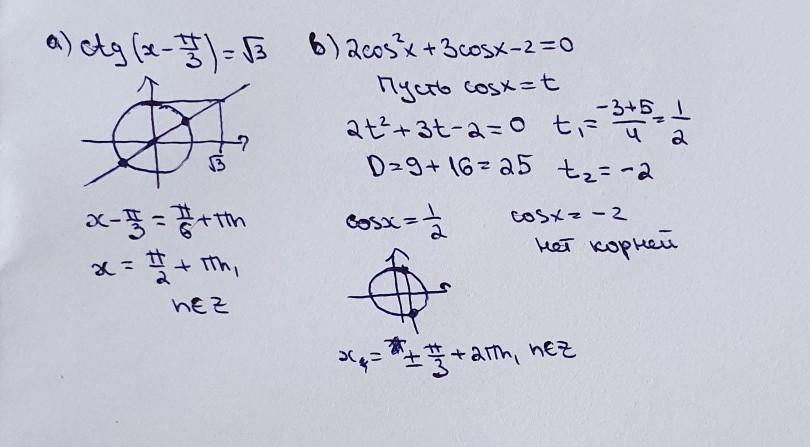 а) ctg(x-π/3)=√3
√3
x-π/3=π/6+πn
x=π/2+πn,
n∈Z
б) 2cos²x+3cosx-2=0
Пусть cosx=t
2t²+3t-2=0 t₁=(-3+5)/4=1/2
D=9+16=25 t₂=-2
cosx=1/2 cosx=-2
нет корней
x=±π/3+2πn, n∈Z